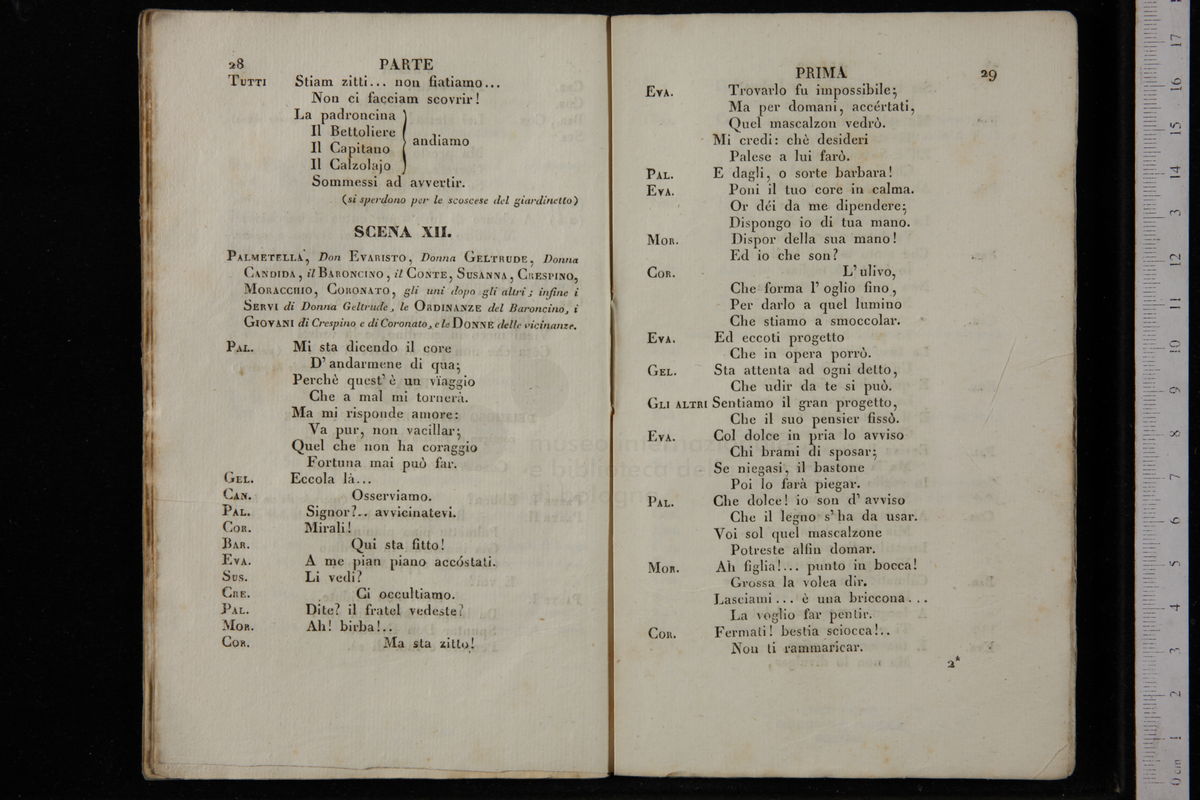 28 PARTE
TUTTI Stiam zitti... non fiatiamo...
Non ci facciam scovrir!
La padroncina
Il Bettoliere
Il Capitano
Il Calzolajo
} andiamo
Sommessi ad avvertir.
(si sperdono per le scoscese del giardinetto)
SCENA XII.
PALMETELLA, Don EVARISTO, Donna GELTRUDE, Donna
CANDIDA, il BARONCINO, il CONTE, SUSANNA, CRESPINO,
MORACCHIO, CORONATO, gli uni dopo gli altri; infine i
SERVI di Donna Geltrude, le ORDINANZE del Baroncino, i
GIOVANI di Crespino e di Coronato, e le DONNE delle vicinanze.
PAL. Mi sta dicendo il core
D' andarmene di qua;
Perchè quest' è un vïaggio
Che a mal mi tornerà.
Ma mi risponde amore:
Va pur, non vacillar;
Quel che non ha coraggio
Fortuna mai può far.
GEL. Eccola là...
CAN. Osserviamo.
PAL. Signor?.. avvicinatevi.
COR. Mirali!
BAR. Qui sta fitto!
EVA. A me pian piano accóstati.
SUS. Li vedi?
CRE. Ci occultiamo.
PAL. Dite? il fratel vedeste?
MOR. Ah! birba!..
COR. Ma sta zitto!
PRIMA 29
EVA. Trovarlo fu impossibile;
Ma per domani, accértati,
Quel mascalzon vedrò.
Mi credi: chè desideri
Palese a lui farò.
PAL. E dagli, o sorte barbara!
EVA. Poni il tuo core in calma.
Or déi da me dipendere;
Dispongo io di tua mano.
MOR. Dispor della sua mano!
Ed io che son?
COR. L' ulivo,
Che forma l' oglio fino,
Per darlo a quel lumino
Che stiamo a smoccolar.
EVA. Ed eccoti progetto
Che in opera porrò.
GEL. Sta attenta ad ogni detto,
Che udir da te si può.
GLI ALTRI Sentiamo il gran progetto,
Che il suo pensier fissò.
EVA. Col dolce in pria lo avviso
Chi brami di sposar;
Se niegasi, il bastone
Poi lo farà piegar.
PAL. Che dolce! io son d' avviso
Che il legno s' ha da usar.
Voi sol quel mascalzone
Potreste alfin domar.
MOR. Ah figlia!... punto in bocca!
Grossa la volea dir.
Lasciami... è una briccona...
La voglio far pentir.
COR. Fermati! bestia sciocca!..
Non ti rammaricar.
2*
museo internaz
e biblioteca del
di bologn
0 cm 1 2 3 4 5 6 7 8 9 10 11 12 13 14 15 16 17